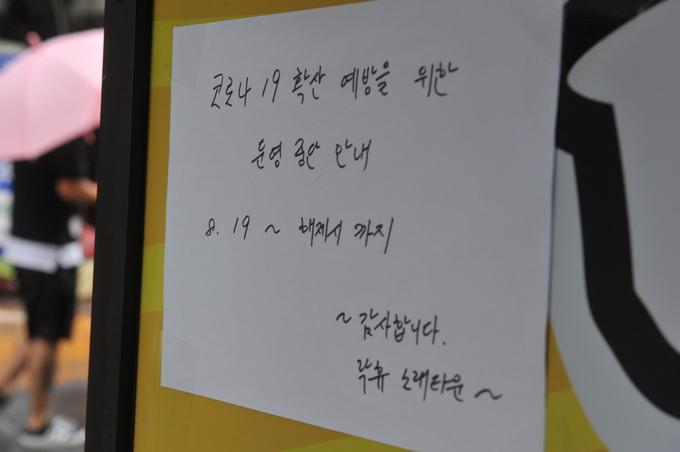 코로나 19 확산 예방을 위한
운영 중단 안내
8. 19 ~ 해제시 까지
~ 감사합니다.
락휴 노래타운 ~